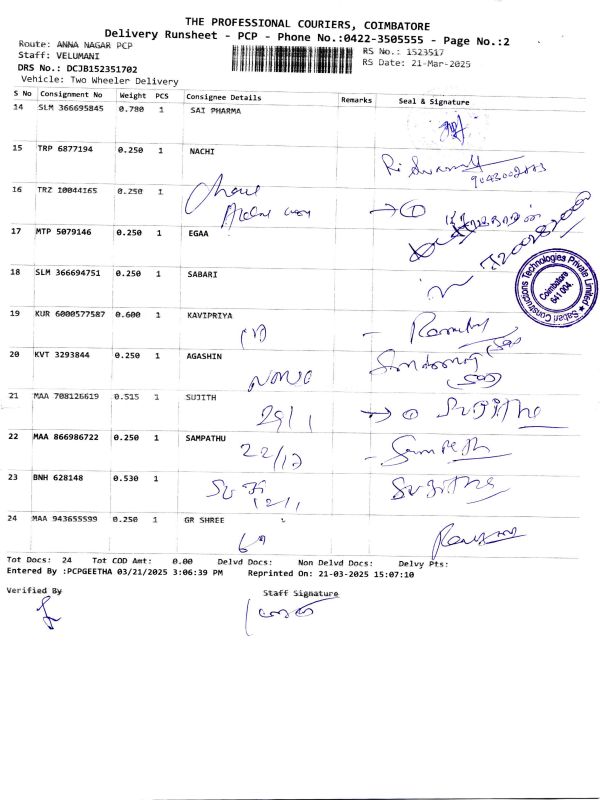 THE PROFESSIONAL COURIERS, COIMBATORE
Delivery Runsheet - PCP - Phone No.:0422-3505555 - Page No.:2
Route: ANNA NAGAR PCP
RS No.: 1523517
Staff: VELUMANI
RS Date: 21-Mar-2025
DRS No.: DCJB152351702
Vehicle: Two Wheeler Delivery
S No Consignment No Weight PCS Consignee Details Remarks Seal & Signature
14 SLM 366695845 0.780 1 SAI PHARMA
15 TRP 6877194 0.250 1 NACHI
16 TRZ 10044165 0.250 1
17 MTP 5079146 0.250 1 EGAA
18 SLM 366694751 0.250 1 SABARI
Sabari Constructions Technologies Private Limited ★
Coimbatore
641 004.
19 KUR 6000577587 0.600 1 KAVIPRIYA
20 KVT 3293844 0.250 1 AGASHIN
21 MAA 708126619 0.515 1 SUJITH
29/1 Sujithe
22 MAA 866986722 0.250 1 SAMPATHU
22/12 Sampeth
23 BNH 628148 0.530 1
Sujithe
12/1
24 MAA 943655599 0.250 1 GR SHREE
Tot Docs: 24 Tot COD Amt: 0.00 Delvd Docs: Non Delvd Docs: Delvy Pts:
Entered By :PCPGEETHA 03/21/2025 3:06:39 PM Reprinted On: 21-03-2025 15:07:10
Verified By Staff Signature